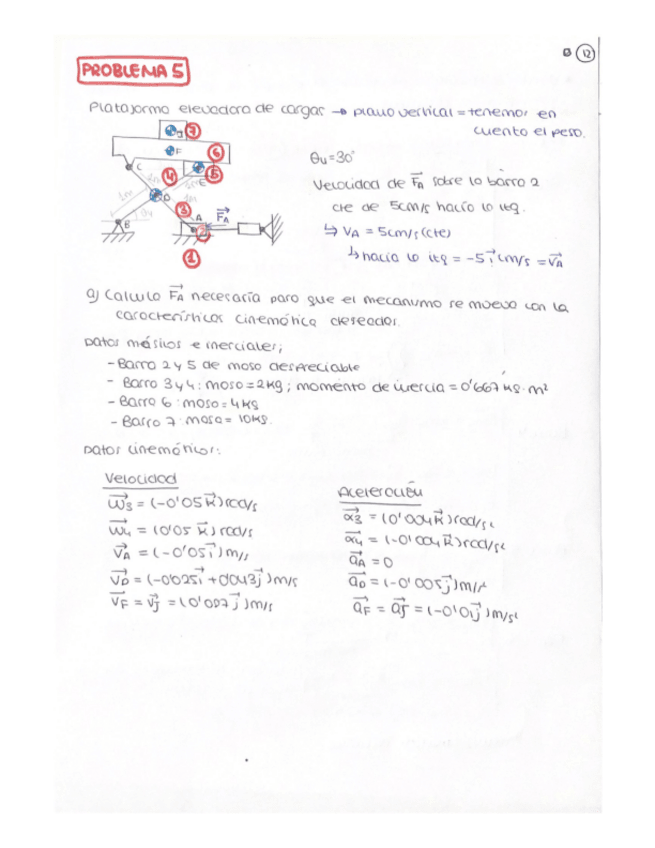 B 12
PROBLEMA 5
Plataforma elevadora de cargas → plano vertical = tenemos en
cuenta el peso.
θ4=30°
Velocidad de F⃗A sobre la barra 2
cte de 5cm/s hacia la izq.
↳ VA = 5cm/s (cte)
↳ hacia la izq = -5 i⃗ cm/s = V⃗A
J 7
F 6
C 4 5
E
D
3
A F⃗A
B θ4 2
1
1m 1m 1m
a) Calcula F⃗A necesaria para que el mecanismo se mueva con la
características cinemática deseadas.
Datos másicos e inerciales;
- Barra 2 y 5 de masa despreciable
- Barra 3 y 4: masa = 2kg ; momento de inercia = 0'667 kg·m²
- Barra 6: masa = 4kg
- Barra 7: masa = 10kg.
Datos cinemáticos:
Velocidad
ω⃗3 = (-0'05 k⃗) rad/s
ω⃗4 = (0'05 k⃗) rad/s
V⃗A = (-0'05 i⃗) m/s
V⃗D = (-0'025 i⃗ + 0'043 j⃗) m/s
V⃗F = V⃗J = (0'087 j⃗) m/s
Aceleración
α⃗3 = (0'004 k⃗) rad/s²
α⃗4 = (-0'004 k⃗) rad/s²
a⃗A = 0
a⃗D = (-0'005 j⃗) m/s²
a⃗F = a⃗J = (-0'01 j⃗) m/s²